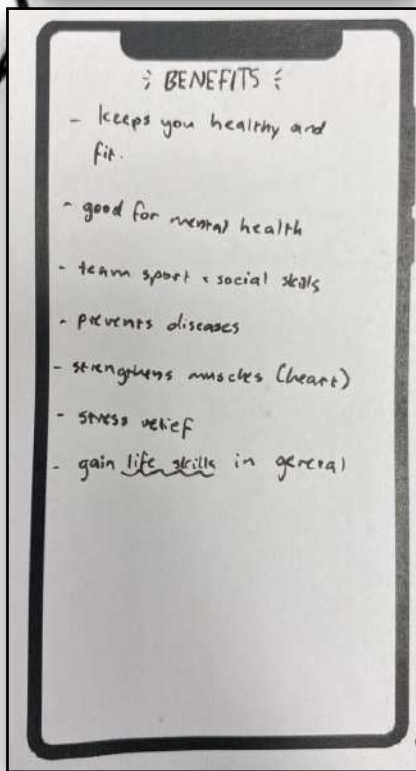 BENEFITS
- keeps you healthy and
fit.
- good for mental health
- team sport = social skills
- prevents diseases
- strengthens muscles (heart)
- stress relief
- gain life skills in general